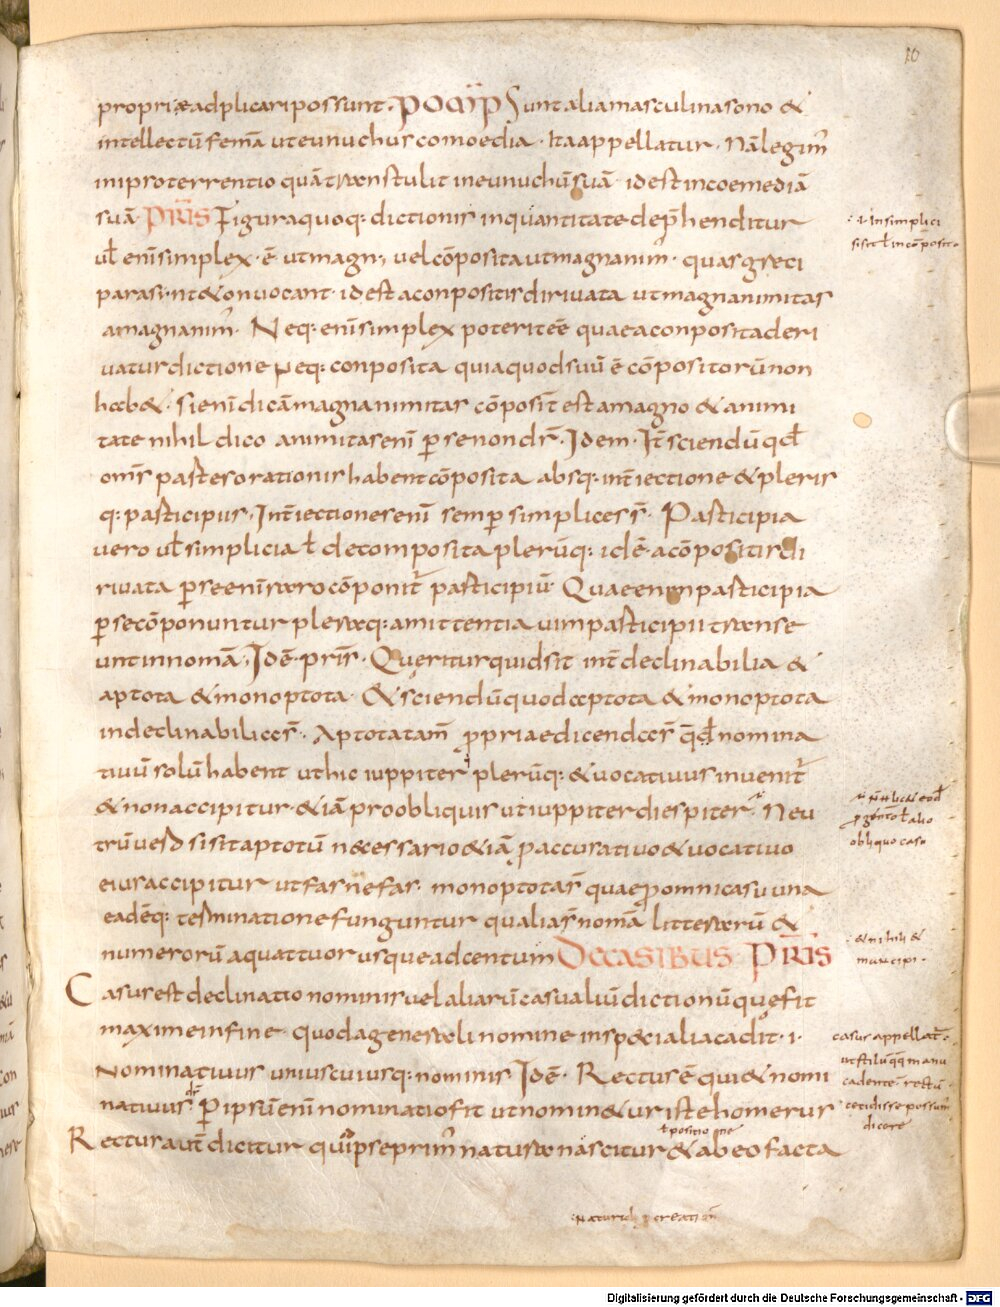 10
propriæ adplicari possunt. POMP Sunt alia masculina sono &
intellectū femā ut eunuchus comoedia · Ita appellatur · Nā legim̄
in ipro terrentio quā transtulit in eunuchū suā · id est in coemediā
suā PRIS Figura quoq: dictionis in quantitate dep̄henditur
ul̄ enī simplex · ē ut magn; uel cōposita ut magnanim̄ · quas greci
parasi·nt&on uocant · id est a conpositis diriuata ut magnanimitas
a magnanim̄ · Neq: enī simplex poterit eē quae a conposita deri
uatur dictione Neq: conposita quia quod suū ē cōpositorū non
hab& · si enī dicā magnanimitas cōposit̄ est a magno & animi
tate nihil dico animitas enī p̄ se non dr̄ · Idem · It̄ sciendū qđ
oms̄ partes orationis habent cōposita absq: int̄iectione & pleris
q: participiis · Int̄iectiones enī semp̄ simplices s̄ · Participia
uero ul̄ simplicia ł decomposita plerūq: idē · a cōpositis di
riuata p̄ se enī raro cōponit̄ participiū Quae enim participia
p̄ se cōponuntur pleraq: amittentia uim participii transe
unt in nomā · Idē · pris̄ · Queritur quid sit int̄ declinabilia &
aptota & monoptota · & sciendū quod aptota & monoptota
indeclinabilia s̄ · Aptota tam̄ propriae dicenda s̄ qđ nomina
tiuū solū habent ut hic iuppiter plerūq: & uocatiuus inuenit̄
& non accipitur · & iā pro obliquis ut iuppiter diespiter · Neu
trū uero si sit aptotū n&cessario & iā p̄ accusatiuo & uocatiuo
eius accipitur ut fas nefas · monoptota s̄ quae pro omni casu una
eadēq: terminatione funguntur qualia s̄ nomā litterarū &
numerorū a quattuor usque ad centum DE CASIBUS PRIS
Casus est declinatio nominis uel aliarū casualiū dictionū quę fit
maxime in fine · quod a generali nomine in sp&ialia cadit · i ·
Nominatiuus uniuscuiusq: nominis Idē · Rectus ē qui & nomi
natiuus dr̄ P̄ ipsū enī nominatio fit ut nomin&ur iste homerus
ł positione
Rectus aut̄ dicitur quia ipse prim̄ natura nascitur & ab eo facta
i in simplici
si sit ł in cōposito
ł alio
obliquo casu
& nihili &
mancipi ·
casus appellat̄ ·
ut stilū qq manu
cadente · rectū ·
cecidisse possum̄
dicere
Digitalisierung gefördert durch die Deutsche Forschungsgemeinschaft - DFG